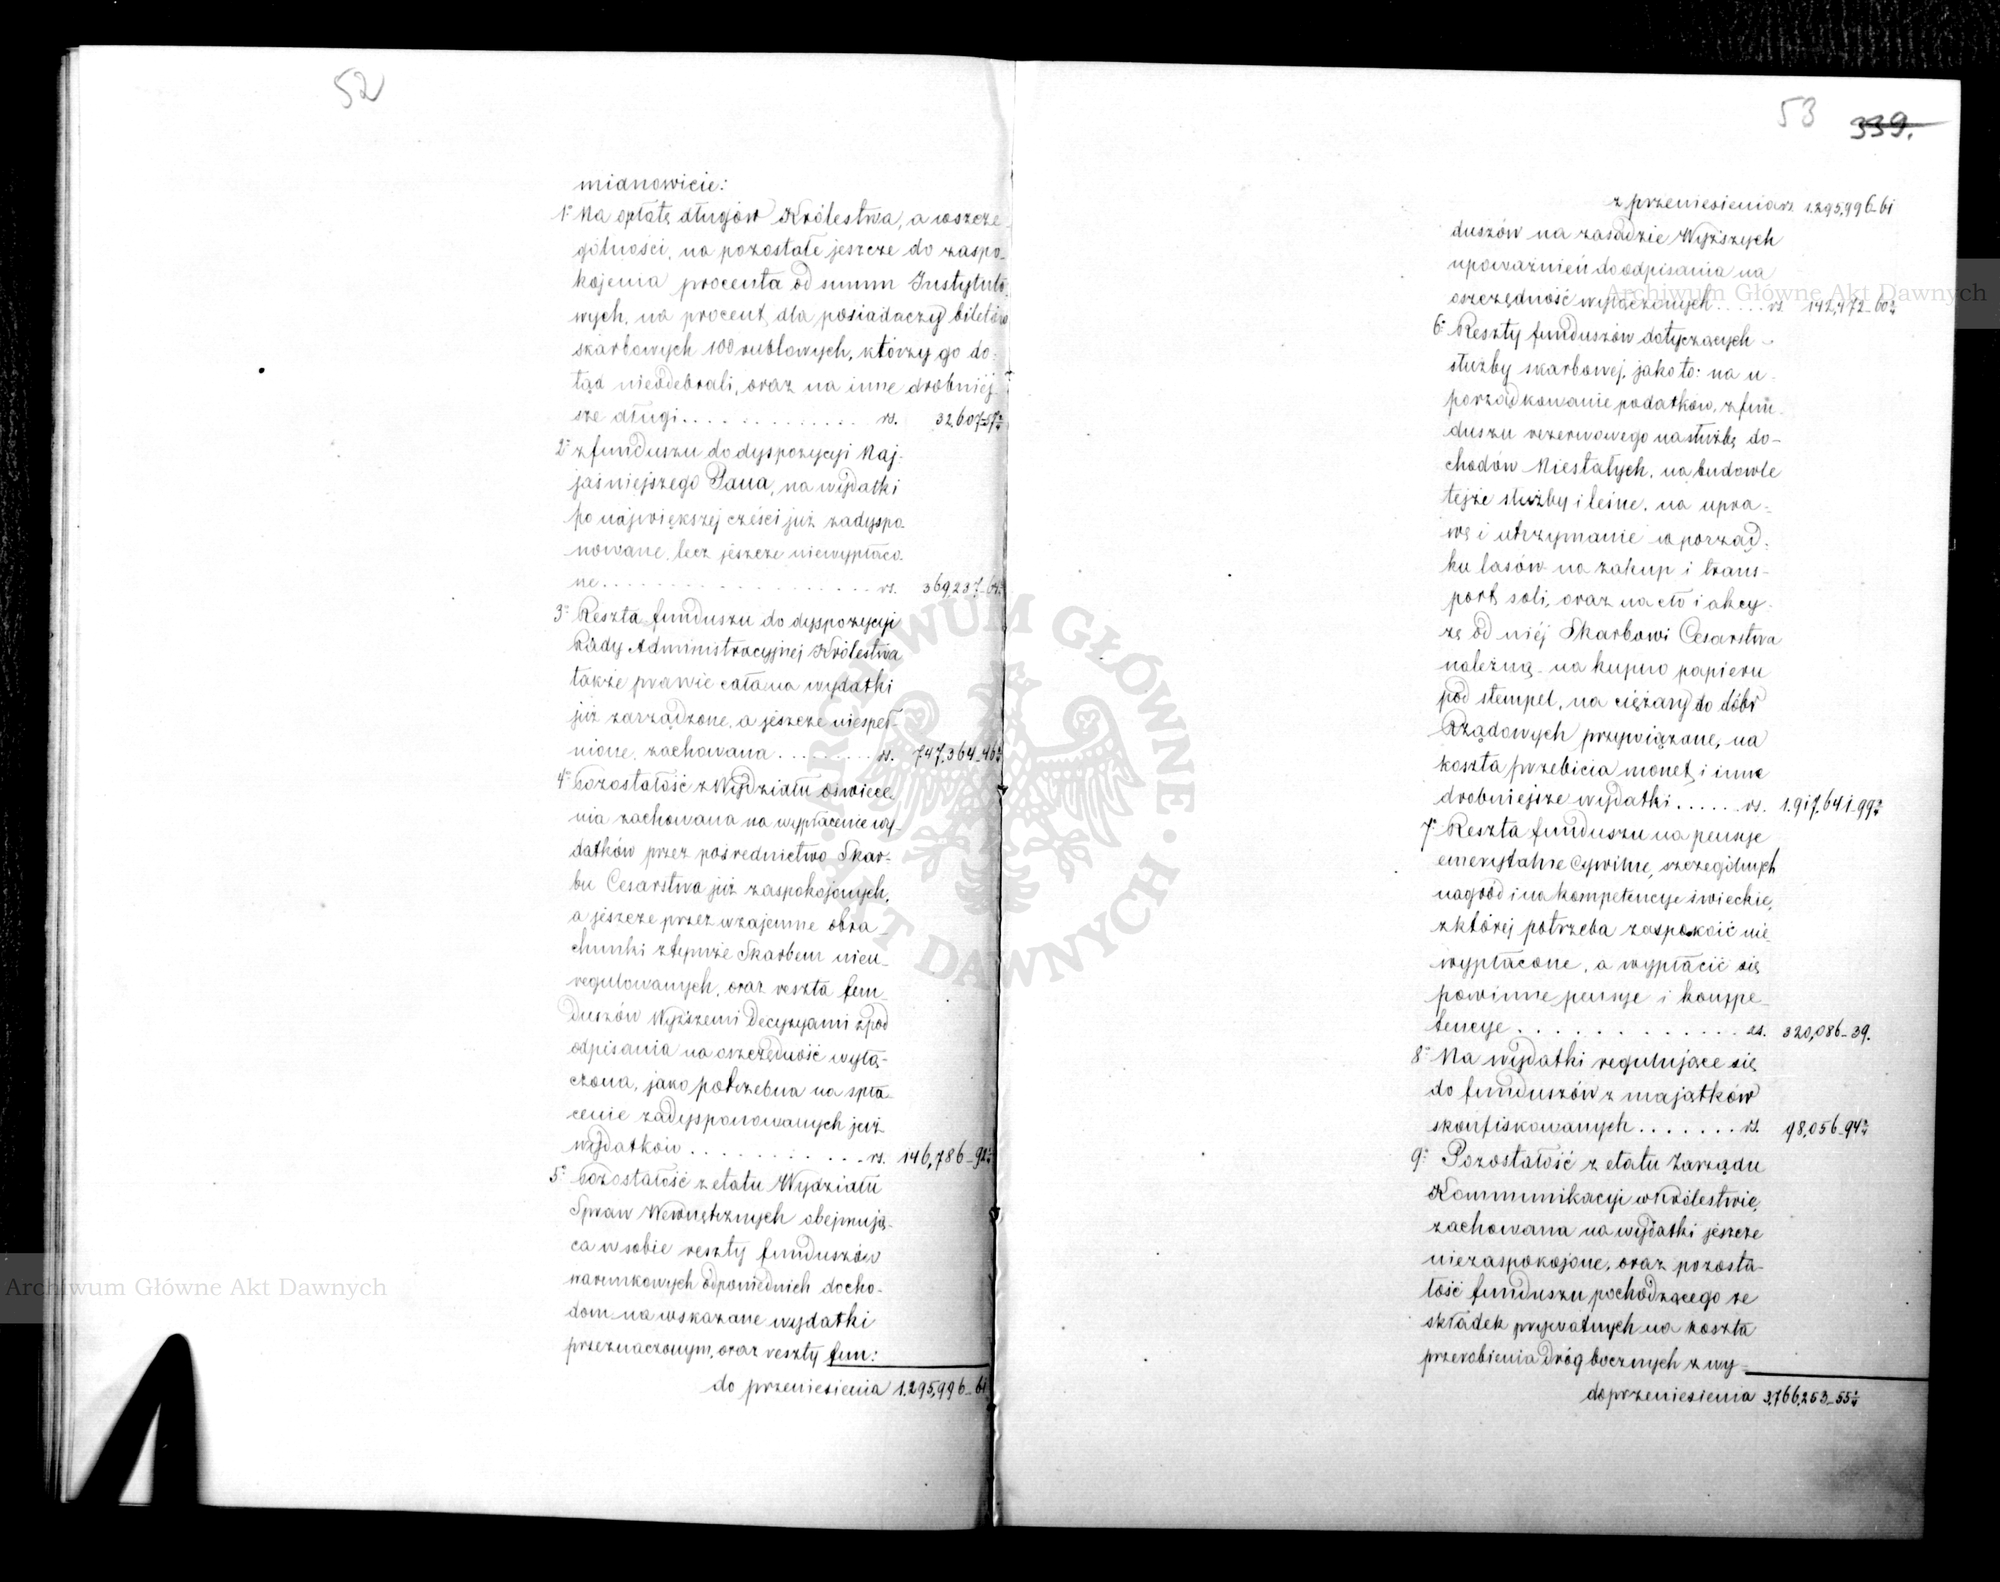 52
mianowicie:
1º Na opłatę długów Królestwa, a wszcze-
gólności, na pozostałe jeszcze do zaspo-
kojenia procenta od summ Instytuto-
wych, na procent dla posiadaczy biletów
skarbowych 100 rublowych, którzy go do-
tąd nieodebrali, oraz na inne drobniej-
sze długi . . . . . . . . . . . . . rs. 32,607
2º z funduszu do dyspozycyi Naj-
jaśniejszego Pana, na wydatki
po największej części już zadyspo-
nowane, lecz jeszcze niewypłaco-
ne . . . . . . . . . . . . . . . . . rs. 369,237
3º Reszta funduszu do dyspozycyi
Rady Administracyjnej Królestwa
także prawie cała na wydatki
już zarządzone, a jeszcze niespeł-
nione, zachowana . . . . . . . . rs. 747,364-46
4º Pozostałość z Wydziału Oświece-
nia zachowana na wypłacenie wy-
datków przez pośrednictwo Skar-
bu Cesarstwa już zaspokojonych,
a jeszcze przez wzajemne obra-
chunki z tymże Skarbem nieu-
regulowanych, oraz reszta fun-
duszów Wyższemi Decyzyami z pod
odpisania na oszczędność wyłą-
czona, jako potrzebna na spła-
cenie zadysponowanych już
wydatków . . . . . . . . . . . . rs. 146,786-92
5º Pozostałość z etatu Wydziału
Spraw Wewnętrznych obejmują-
ca w sobie reszty funduszów
warunkowych odpowiednich docho-
dom na wskazane wydatki
przeznaczonym, oraz reszty fun:
do przeniesienia 1.295,996-61
53
339.
z przeniesienia rs. 1.295,996-61
duszów na zasadzie Wyższych
upoważnień do odpisania na
oszczędność wyłączonych . . . . . rs. 142,472-60
6º Reszty funduszów dotyczących
służby skarbowej, jako to: na u-
porządkowanie podatków, z fun-
duszu rezerwowego na służbę do-
chodów Niestałych, na budowle
tejże służby i leśne, na upra-
wę i utrzymanie w porząd-
ku lasów na zakup i trans-
port soli, oraz na cło i akcy-
zę od niéj Skarbowi Cesarstwa
należną, na kupno papieru
pod stempel, na ciężary do dóbr
Rządowych przywiązane, na
koszta przebicia monet i inne
drobniejsze wydatki . . . . . rs. 1.917,641.99
7º Reszta funduszu na pensje
emerytalne Cywilne, szczególnych
nagród i na kompetencye świeckie,
z któréj potrzeba zaspokoić nie
wypłacone, a wypłacić się
powinne pensje i kompe-
tencye . . . . . . . . . . . . . rs. 320,086-39.
8º Na wydatki regulujące się
do funduszów z majątków
skonfiskowanych . . . . . . . rs. 98,056-94
9º Pozostałość z etatu Zarządu
Kommunikacyi w Królestwie,
zachowana na wydatki jeszcze
niezaspokojone, oraz pozosta-
łość funduszu pochodzącego ze
składek prywatnych na koszta
przerobienia dróg bocznych z wy-
do przeniesienia 3,766,253-55
Archiwum Główne Akt Dawnych
Archiwum Główne Akt Dawnych
ARCHIWUM GŁÓWNE AKT DAWNYCH